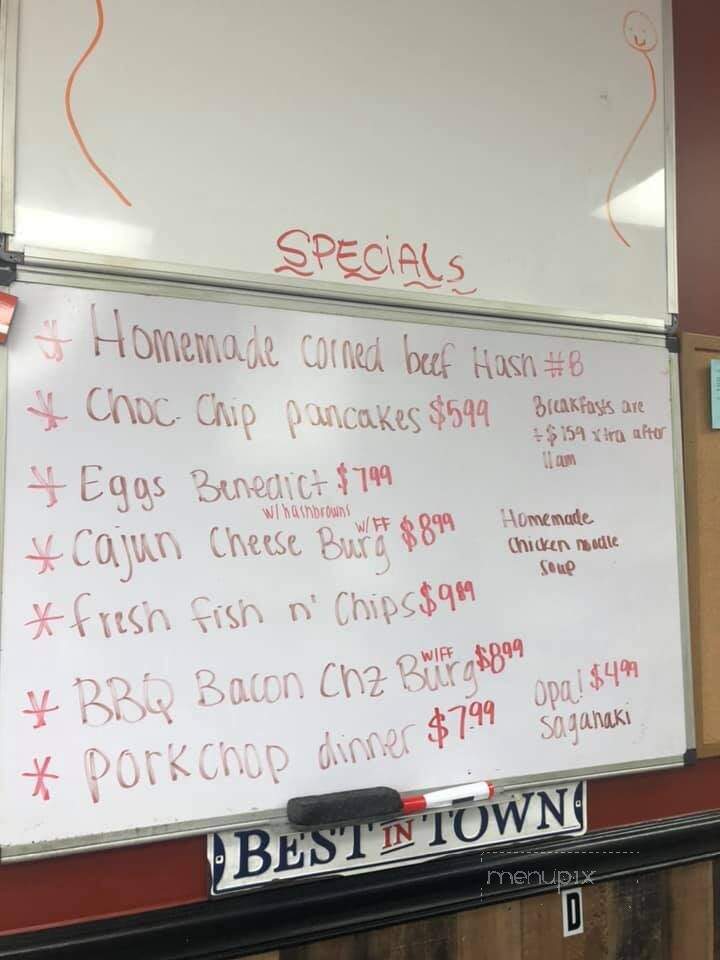 SPECIALS
* Homemade corned beef Hash #8
* Choc. Chip pancakes $5.99
Breakfasts are
+$1.59 xtra after
11am
* Eggs Benedict $7.99
w/hashbrowns
* Cajun Cheese Burg w/FF $8.99
Homemade
Chicken noodle
Soup
* fresh fish n' Chips $9.89
* BBQ Bacon Chz Burg w/FF $8.99
* porkchop dinner $7.99
Opa! $4.99
Saganaki
BEST IN TOWN
menupix
D